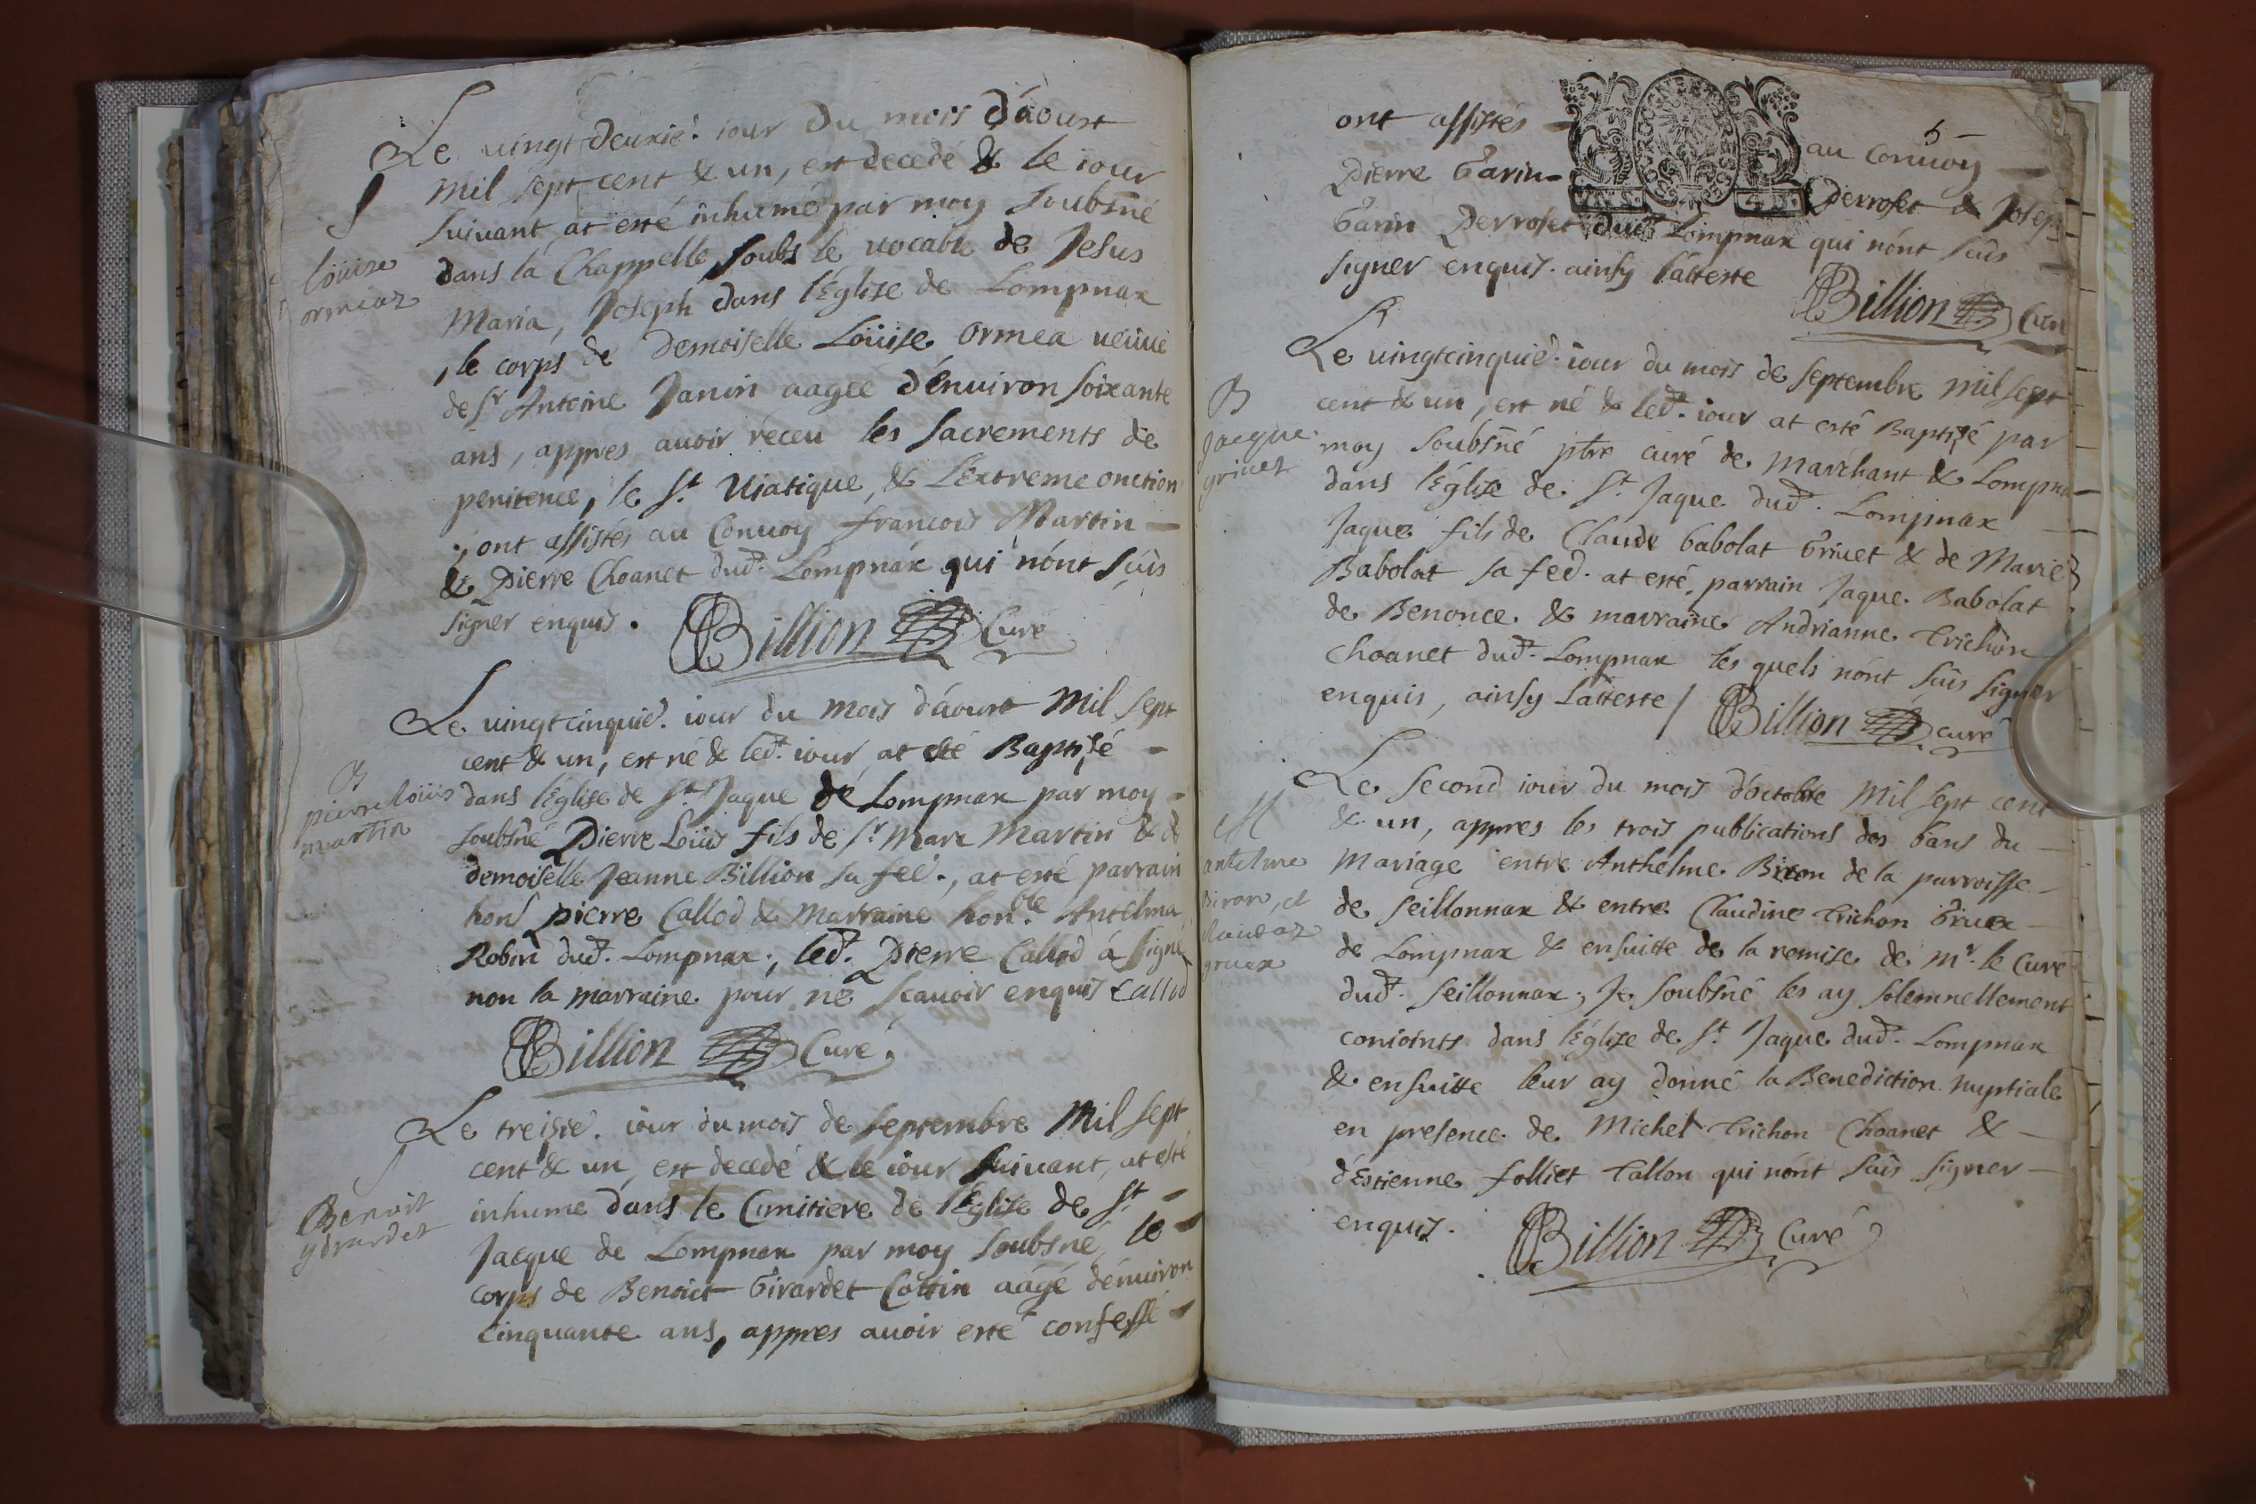 Le vingt deuxié. iour du mois d'áoust
mil sept cent & un, est decedé & le iour
suivant at esté inhumé par moy soubsné
dans la Chappelle soubs le vocable de Jesus
Maria, Joseph dans l'Eglise de Lompnax
, le corps de Demoiselle Loüise Ormea veüve
de Sr Antoine Janin aagée d'énuiron soixante
ans, appres auoir receu les sacrements de
penitence, le St. Uiatique, & L'extreme onction
, ont assistés au Conuoy francois Martin
& Pierre Choanet dud. Lompnax qui n'ont sçûs
signer enquis.
Billion Curé
Loüise
ormeaz
Le vingtcinquié. iour du mois d'áoust mil sept
cent & un, est né & led. iour at esté Baptisé
dans l'Eglise de St. Jaque de Lompnax par moy
soubsné Pierre Loüis fils de Sr Marc Martin & de
demoiselle Jeanne Billion sa fee., at esté parrain
hon. Pierre Callod & Marraine hon.ble Antelma
Robin dud. Lompnax, led. Pierre Callod á signé
non la marraine pour ne scauoir enquis Callod
Billion Curé.
B
pierre loüis
martin
Le treisié. iour du mois de septembre mil sept
cent & un, est decedé & le iour suiuant, at esté
inhumé dans le Cimitiere de l'Eglise de St.
Jacque de Lompnax par moy soubsné, le
corps de Benoict Girardet Cottin aagé d'énuiron
cinquante ans, appres auoir esté confessé
Benoit
gérardet
5
ont assistés au conuoy
Pierre Garin Perroset & Josep
Garin Perroset dud. Lompnax qui n'ont sçûs
signer enquis. ainsy l'atteste
Billion Curé
Le vingtcinquié. iour du mois de septembre mil sept
cent & un, est né & led. iour at esté Baptisé par
moy soubsné ptre curé de Marchant & Lompnax
dans l'Eglise de St. Jaque dud. Lompnax
Jaque fils de Claude Gabolat Griuet & de Marie
Babolat sa fee. at esté parrain Jaque Babolat
de Benonce & marraine Andrianne Trichon
Choanet dud. Lompnax les quels n'ont sçûs signer
enquis, ainsy L'atteste / Billion curé
B
Jacque
griuet
Le second iour du mois d'octobre mil sept cent
& un, appres les trois publications des bans du
Mariage entre Anthelme Biron de la parroisse
de Seillonnax & entre Claudine Trichon Gruex
de Lompnax & ensuitte de la remise de Mr. le Curé
dud. Seillonnax, Je soubsné les ay solemnellement
conioints dans l'Eglise de St. Jaque dud. Lompnax
& ensuitte leur ay donné la Benediction nuptiale
en presence de Michel Trichon Choanet &
d'Estienne Folliet Tallon qui n'ont sçûs signer
enquis. Billion Curé
M
antelme
Biron, et
gruex